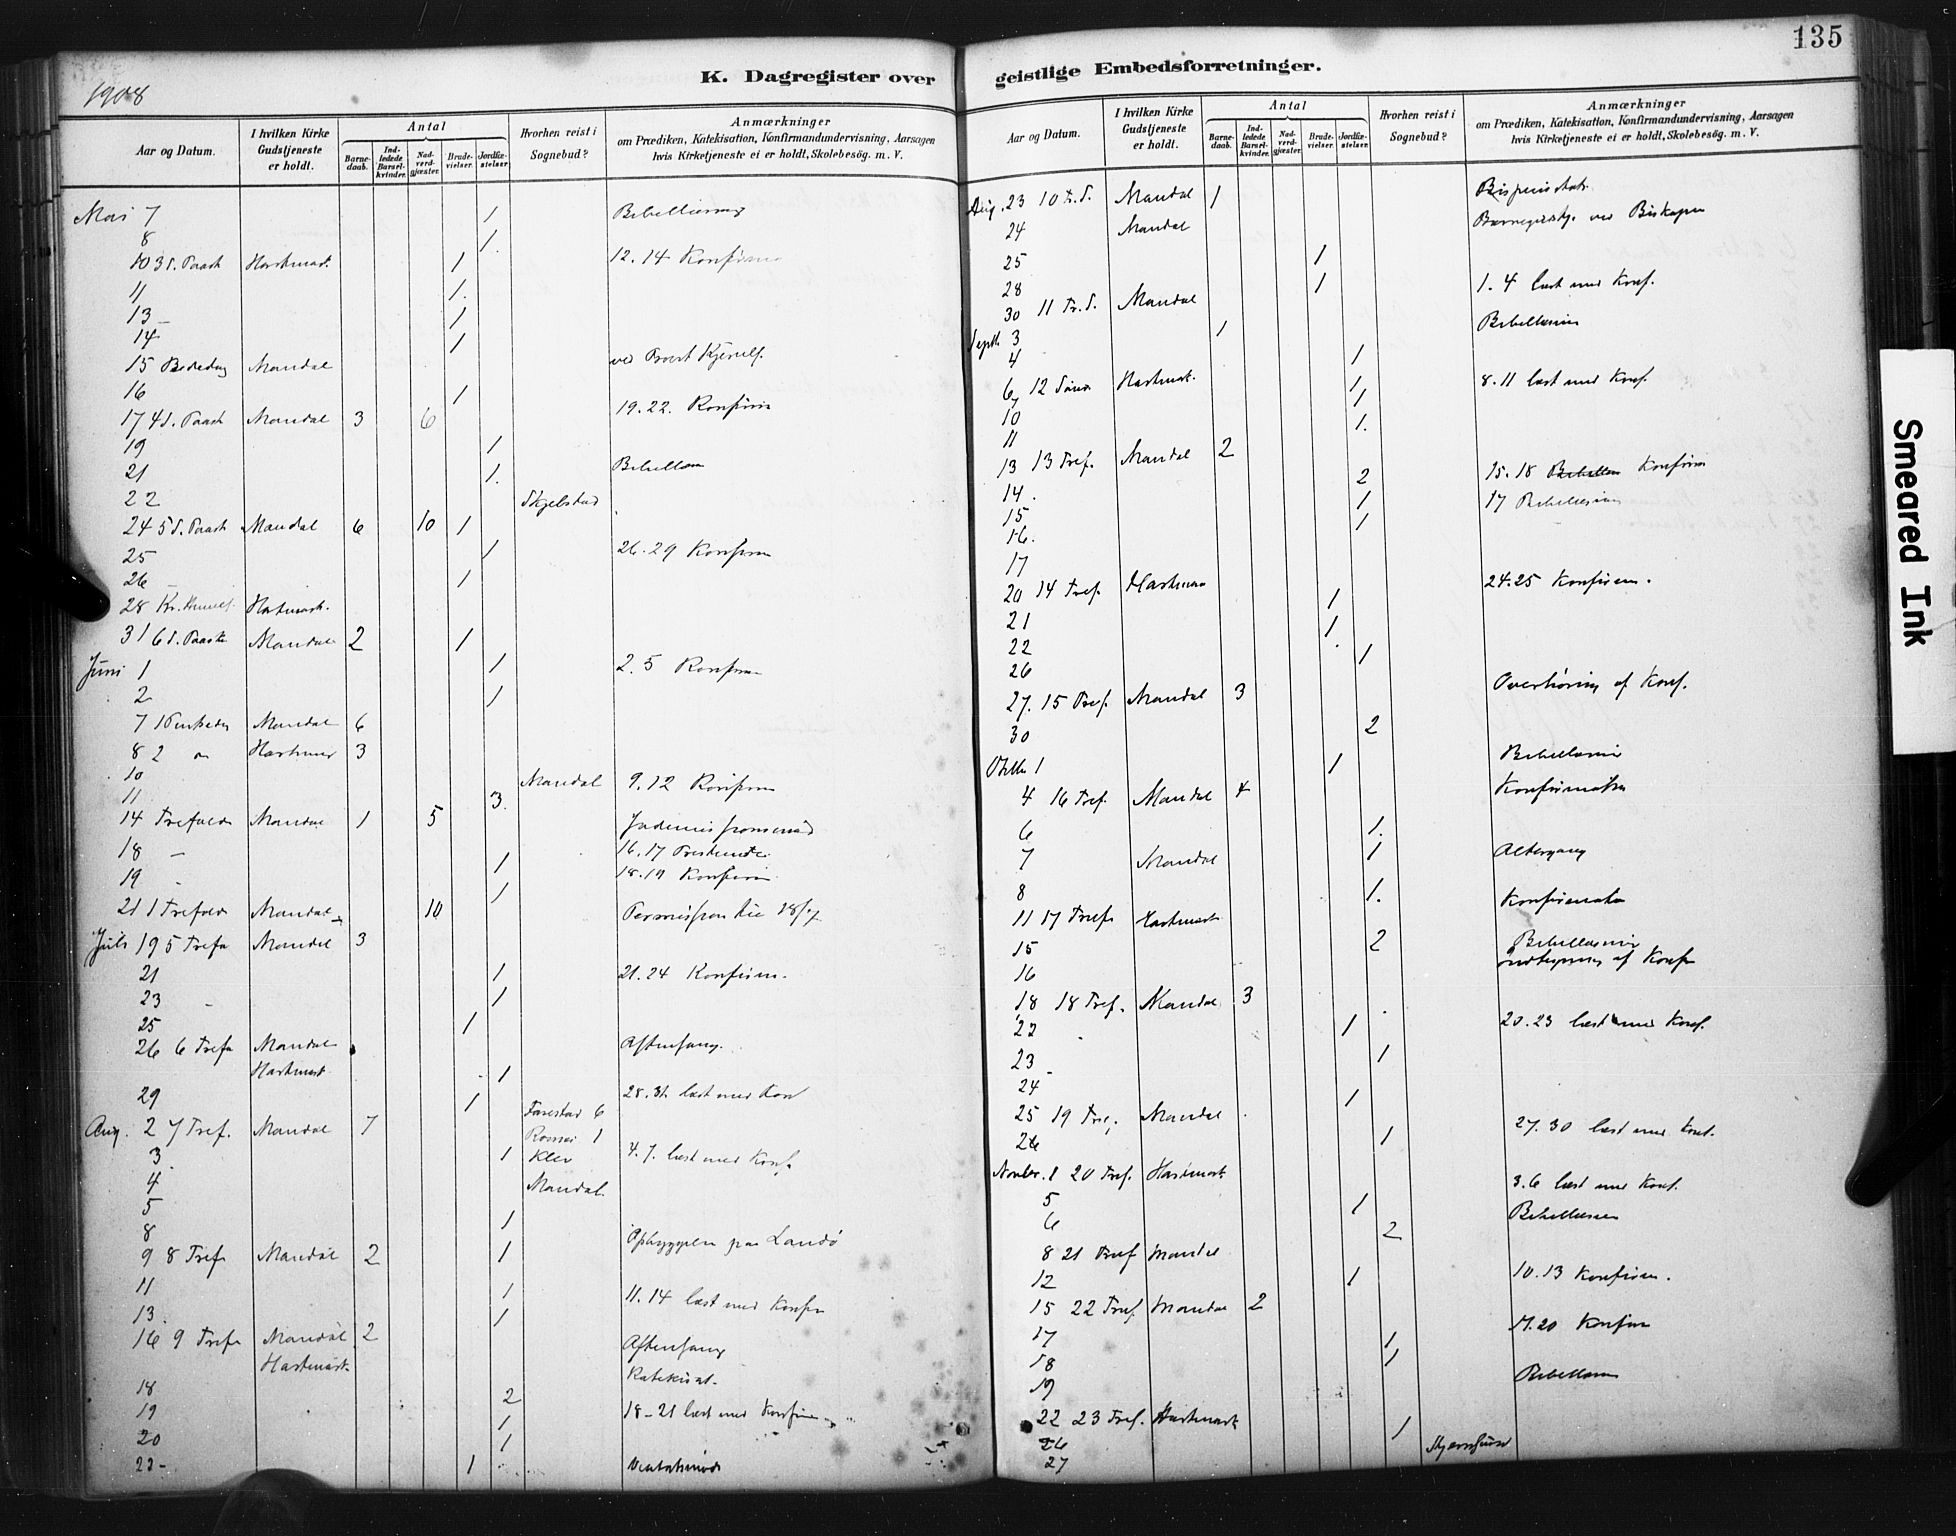 1908
K. Dagregister over
Aar og Datum.
I hvilken Kirke Gudstjeneste er holdt.
Antal
Barne-daab.
Ind-ledede Barsel-kvinder.
Nad-verd-gjæster.
Brude-vielser.
Jordfæ-stelser.
Hvorhen reist i Sognebud?
Anmærkninger
om Prædiken, Katekisation, Konfirmandundervisning, Aarsagen
hvis Kirketjeneste ei er holdt, Skolebesög. m. V.
Mai 7 1 Bibellæsning
8 1.
10 3 S. Paask Hartmark. 1 12. 14 Konfirm
11 1.
13 1
14 1
15 Bededag Mandal ved Provst
16 1
17 4 S. Paask Mandal 3 6 19. 22. Konfirm
19 1
21 1. Bibellæsn
22 Skjelstad
24 5 S. Paask Mandal 6 10 1
25 1 26. 29 Konfirm
26 1
28 Kr. Himmelf. Hartmark.
31 6 S. Paask Mandal 2 1
Juni 1 1 2. 5 Konfirm
2 1
7 1 Pinsedag Mandal 6
8 2 Hartmark 3
10 Mandal 9. 12 Konfirm
11 3.
14 Trefold Mandal 1 5
18 – 1 16. 17
19 1 18. 19 Konfirm
21 1 Trefold Mandal 10 Permission til 18/7
Juli 19 5 Trefo Mandal 3
21 1 21. 24 Konfirm.
23 1
25 1
26 6 Trefo Mandal Aftensang.
Hartmark 1
29 1 28. 31. læst med Kon
Aug. 2 7 Tref. Mandal 7 Farestad 6
3 1 Klev 4. 7. læst med Konf.
4 Mandal.
5
8 1
9 8 Tref Mandal 2 1 paa Landø
11 1 11. 14 læst med Konfir
13. 1
16 9 Trefo Mandal 2 Aftensang
Hartmark Katekisat.
18 2
19 1 18–21 læst med Konfirm
20 1
22 – 1
135
geistlige Embedsforretninger.
Aar og Datum.
I hvilken Kirke Gudstjeneste er holdt.
Antal
Barne-daab.
Ind-ledede Barsel-kvinder.
Nad-verd-gjæster.
Brude-vielser.
Jordfæ-stelser.
Hvorhen reist i Sognebud?
Anmærkninger
om Prædiken, Katekisation, Konfirmandundervisning, Aarsagen
hvis Kirketjeneste ei er holdt, Skolebesög. m. V.
Aug. 23 10 Tr. S. Mandal 1 Bispevisitats
24 Mandal ved Biskopen
25 1
28 1 1. 4 læst med Konf.
30 11 Tr. S. Mandal
Septb 3 1 Bibellæsning
4 1
6 12 Sönd Hartmark. 1 8. 11 læst med Konf.
7 1
10 1.
11
13 13 Tref. Mandal 2 2 15. 18 Bibellæsn Konfirm
14. 1 17 Bibellæsning
15 1
16.
17
20 14 Tref. Hartmark 1 24. 25 Konfirm.
21 1
22
26 1
27. 15 Tref. Mandal 3 Overhöring af Konf.
30 2
Oktb 1 1 Bibellæsning
4 16 Tref. Mandal 4 Konfirmation
6 1.
7 Mandal 1 Altergang
8 1.
11 17 Tref Hartmark Konfirmation
15 2 Bibellæsning
16 Indtegning af Konfir
18 18 Tref. Mandal 3
22 1 20. 23 læst med Konf.
23 1
24
25 19 Tref. Mandal 1
26 1 27. 30 læst med Konf.
Novbr. 1 20 Tref. Hartmark 3. 6 læst med Konf.
5 1 Bibellæsnin
6 2
8 21 Tref Mandal
12 1 10. 13 Konfirm.
15 22 Tref. Mandal 2
17 1 17. 20 Konfirm
18 1
19 Bibellæsn
22 23 Tref. Hartmark
26 1
27
Smeared Ink